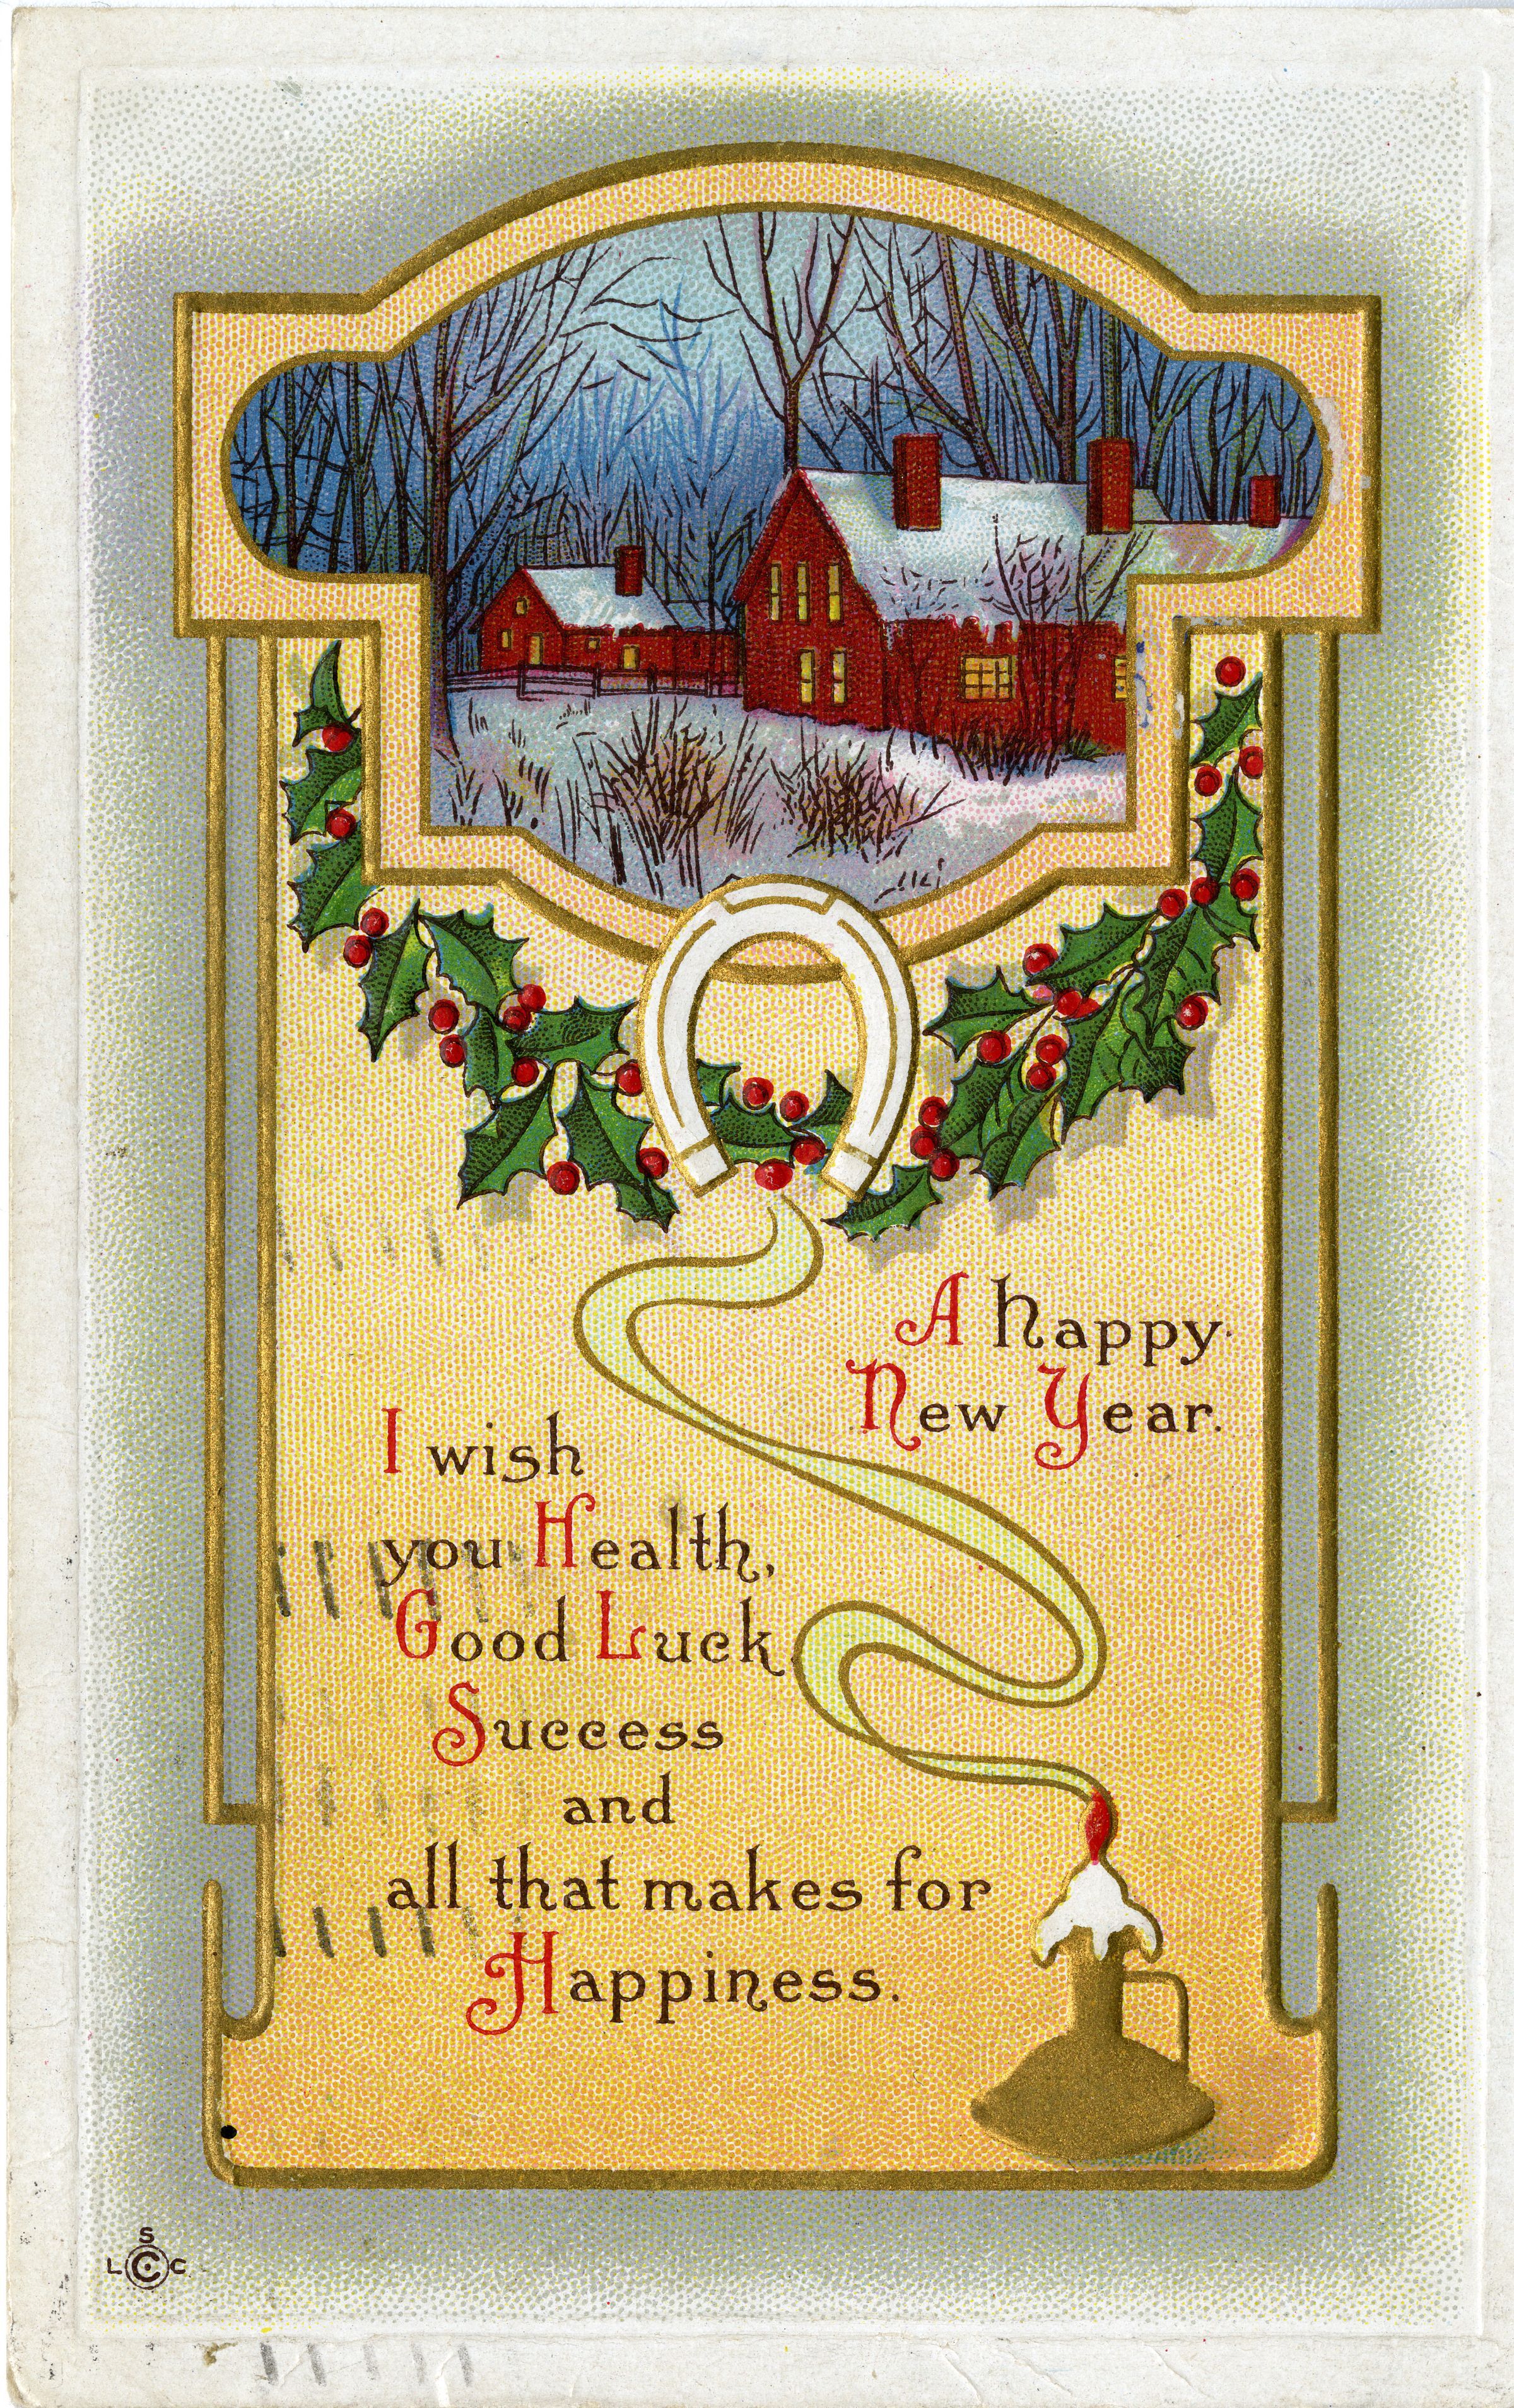 A happy
New Year.
I wish
you Health,
Good Luck
Success
and
all that makes for
Happiness.
S
L C C